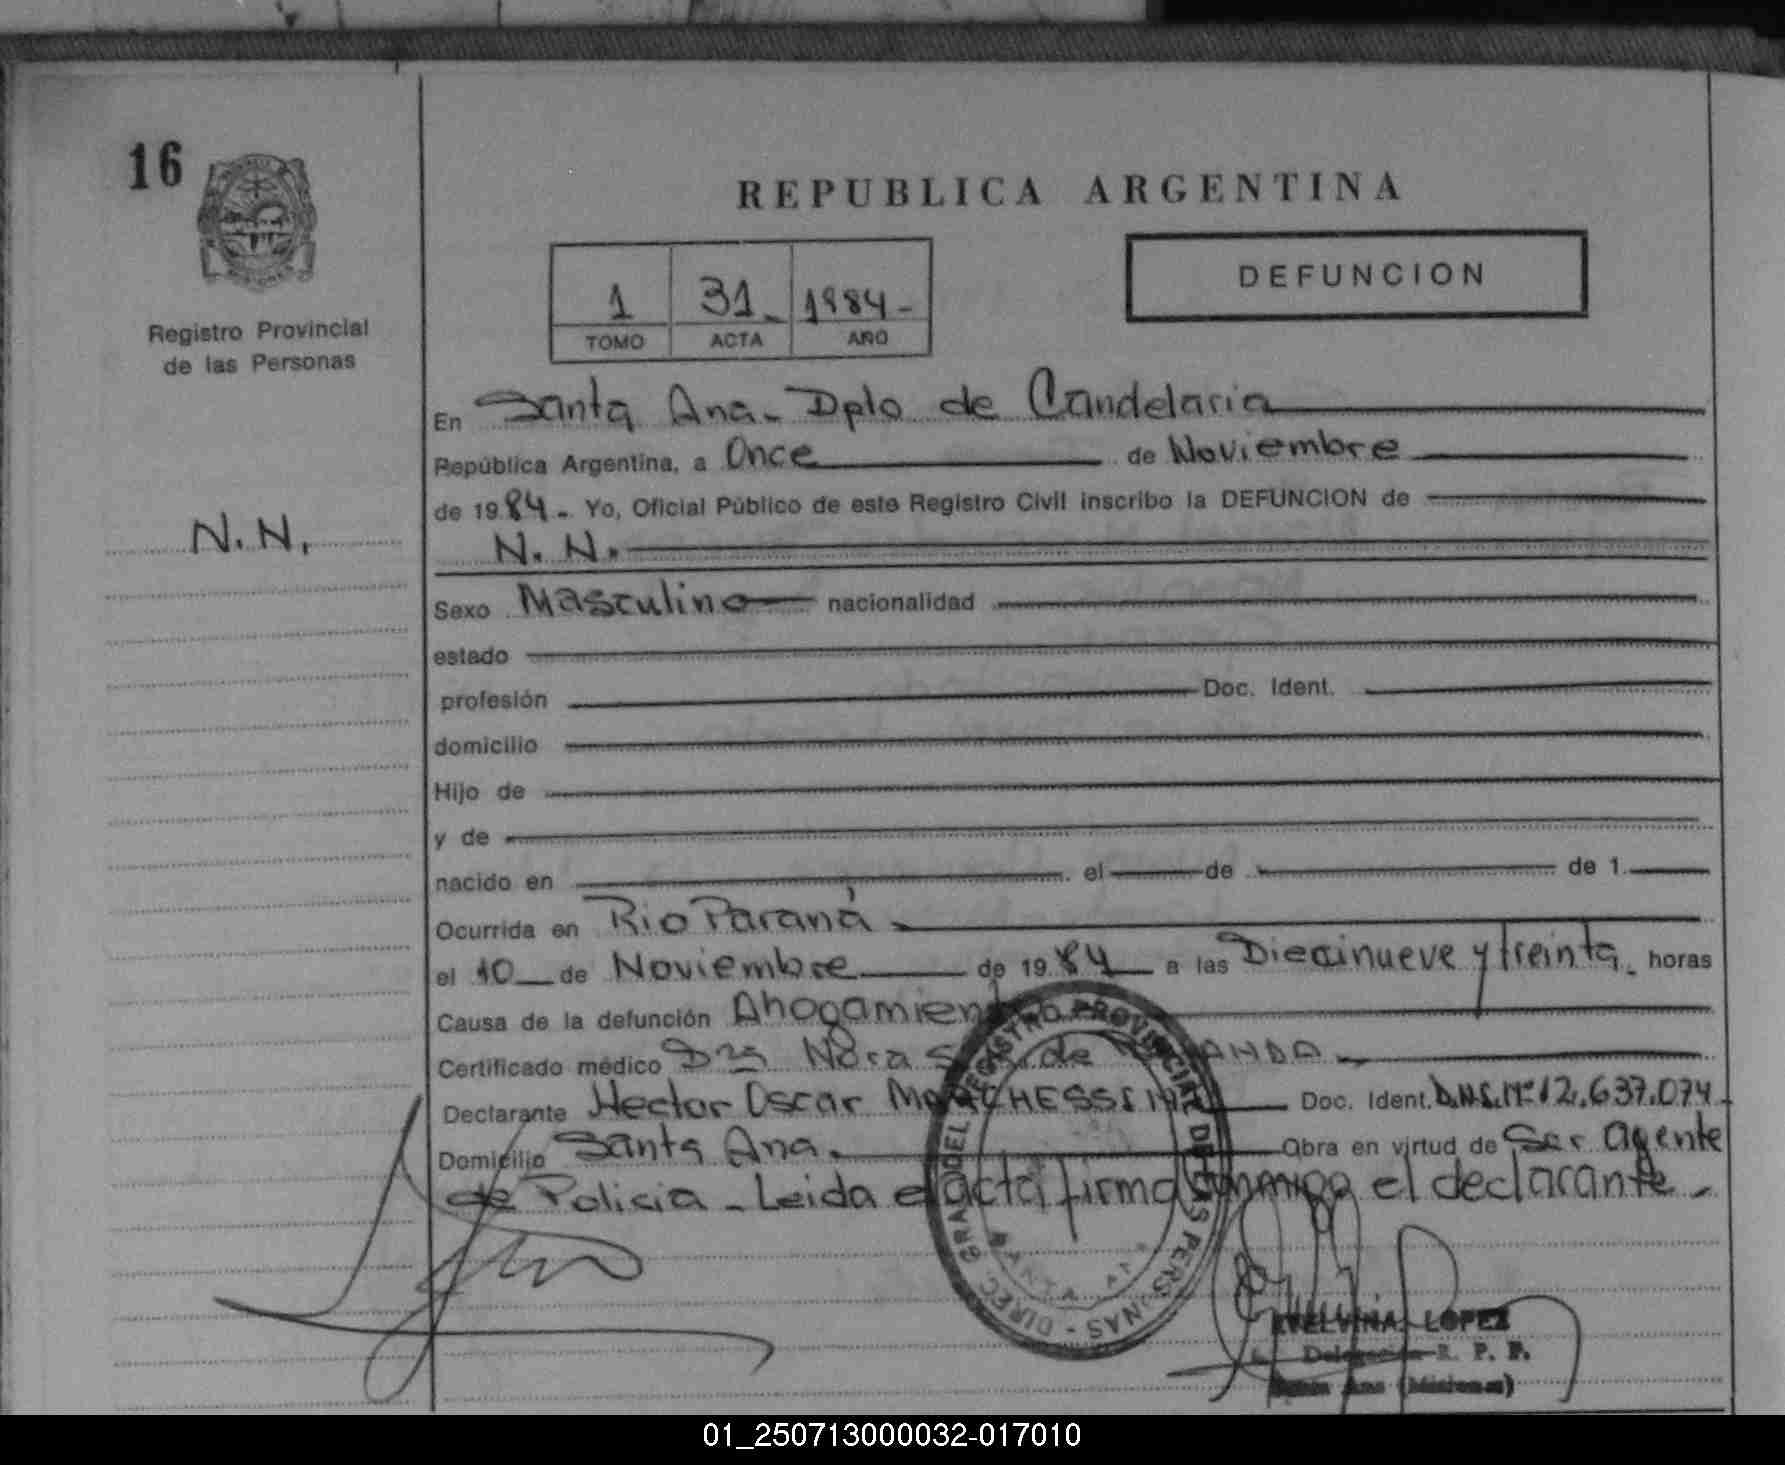 16
REPUBLICA ARGENTINA
DEFUNCION
1 31 1984-
TOMO ACTA AÑO
Registro Provincial
de las Personas
N.N.
En Santa Ana - Dpto de Candelaria
República Argentina, a Once de Noviembre
de 1984 - Yo, Oficial Público de este Registro Civil inscribo la DEFUNCION de
N. N.
Sexo Masculino nacionalidad
estado
profesión Doc. Ident.
domicilio
Hijo de
y de
nacido en el de de 1
Ocurrida en Rio Paraná
el 10 de Noviembre de 1984 a las Diecinueve y treinta horas
Causa de la defunción Ahogamiento
Certificado médico Dra Nora de
Declarante Hector Oscar Doc. Ident. D.N.I. Nº 12.637.074
Domicilio Santa Ana. Obra en virtud de Ser agente
de Policia - Leida el acta firma conmigo el declarante -
DIREC. GRAL DEL REGISTRO PROVINCIAL DE LAS PERSONAS -
SANTA ANA
EVELVINA LOPEZ
Delegación R. P. P.
Santa Ana (Misiones)
01_250713000032-017010